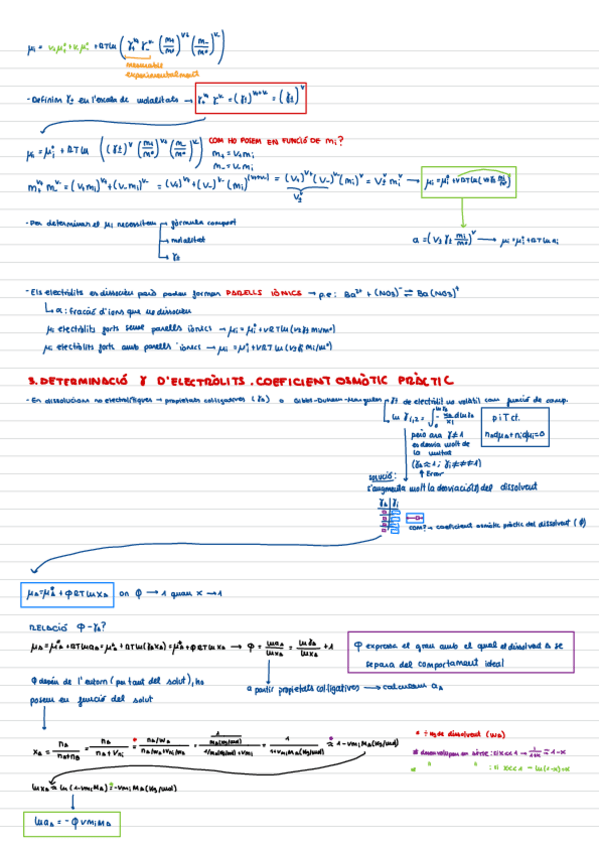 μi = ν+μ+° + ν-μ-° + RT ln (γ+^ν+ γ-^ν- (m+/m°)^ν+ (m-/m°)^ν-)
mesurable
experimentalment
- Definim γ± en l'escala de molalitats → γ+^ν+ γ-^ν- = (γ±)^ν+ν- = (γ±)^ν
μi = μi° + RT ln ((γ±)^ν (m+/m°)^ν+ (m-/m°)^ν-) COM HO POSEM EN FUNCIÓ DE mi?
m+ = ν+mi
m- = ν-mi
m+^ν+ m-^ν- = (ν+mi)^ν+ (ν-mi)^ν- = (ν+)^ν+ (ν-)^ν- (mi)^(ν+ν-) = (ν+)^ν+ (ν-)^ν- (mi)^ν = ν±^ν mi^ν → μi = μi° + νRT ln(ν±γ± mi/m°)
ν±^ν
- Per determinar el μi necessitem → fórmula compost
→ molalitat
→ γ±
a = (ν± γ± mi/m°)^ν → μi = μi° + RT ln ai
- Els electròlits es dissocien però poden formar PARELLS IÒNICS → p.e: Ba²⁺ + (NO3)⁻ ⇌ Ba(NO3)⁺
α: fracció d'ions que no dissocien
μi electròlits forts sense parells iònics → μi = μi° + νRT ln(ν±γ± mi/m°)
μi electròlits forts amb parells iònics → μi = μi° + νRT ln(ν±γ± mi/m°)
3. DETERMINACIÓ γ D'ELECTRÒLITS. COEFICIENT OSMÒTIC PRÀCTIC
- En dissolucions no electrolítiques → propietats col·ligatives (γA) o Gibbs-Duhem-Margules → γi de electròlit no volàtil com funció de comp.
però ara γ≠1
es desvia molt de
la unitat
(γA ≈ 1; γi ≠≠≠1)
↑ Error
p i T ct.
nAdμA + nidμi = 0
SOLUCIÓ:
s'augmenta molt la desviació(s) del dissolvent
γA | γi
com? → coeficient osmòtic pràctic del dissolvent (φ)
μA = μA° + φRT ln xA on φ → 1 quan x → 1
RELACIÓ φ-γA?
μA = μA° + RT ln aA = μA° + RT ln(γAxA) = μA° + φRT ln xA → φ = ln aA/ln xA = ln γA/ln xA + 1
φ expressa el grau amb el qual el dissolvent A se
separa del comportament ideal
a partir propietats col·ligatives → calculem aA
φ depèn de l'entorn (per tant del solut), ho
posem en funció del solut
xA = nA/(nA+nB) = nA/(nA+νni) = (nA/wA)/(nA/wA+νni/wA) = (1/MA(kg/mol))/(1/MA(kg/mol)+νmi) = 1/(1+νmiMA(kg/mol)) ≈ 1-νmiMA(kg/mol)
* ÷ kg de dissolvent (wA)
* desenvolupem en sèrie: si x<<1 → 1/(1+x) ≈ 1-x
* " " : si x<<1 → ln(1-x) ≈ -x
ln xA ≈ ln(1-νmiMA) ≈ -νmiMA(kg/mol)
ln aA = -φνmiMA